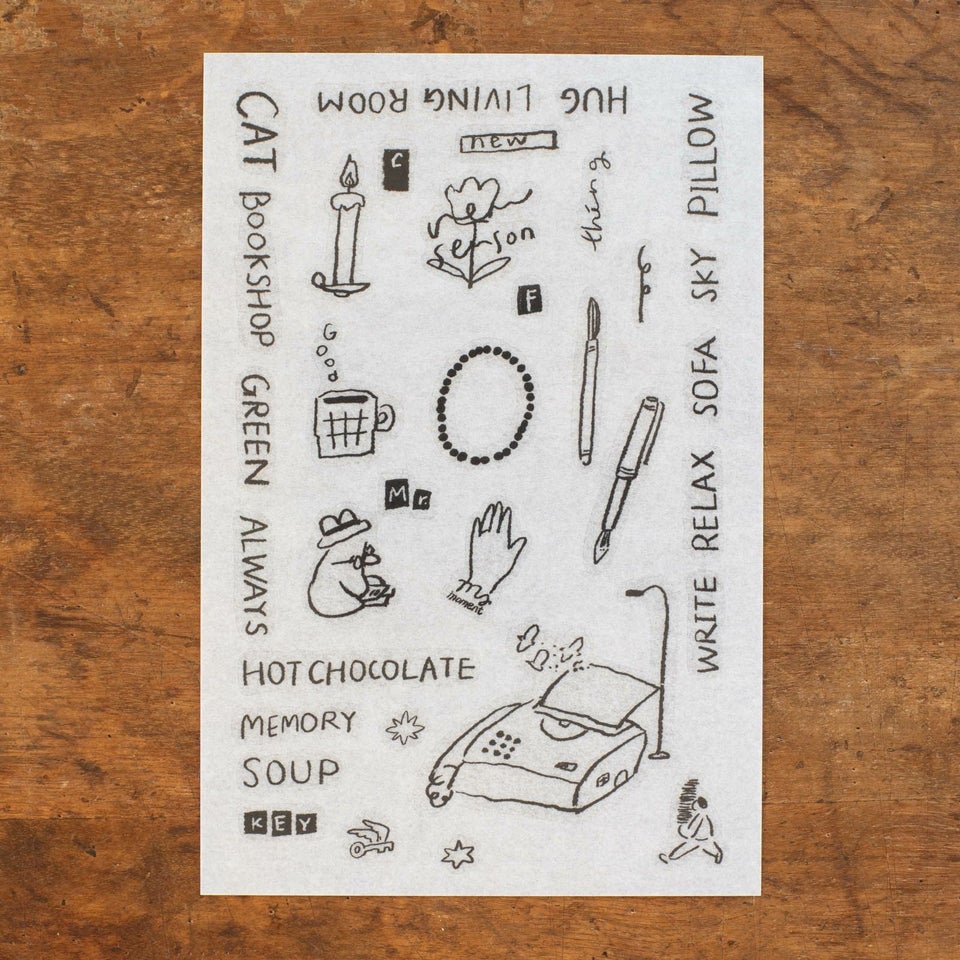 HUG LIVING ROOM
CAT BOOKSHOP GREEN ALWAYS
new
r
thing
season
F
Good
Mr.
my
moment
WRITE RELAX SOFA SKY PILLOW
HOT CHOCOLATE
MEMORY
SOUP
KEY